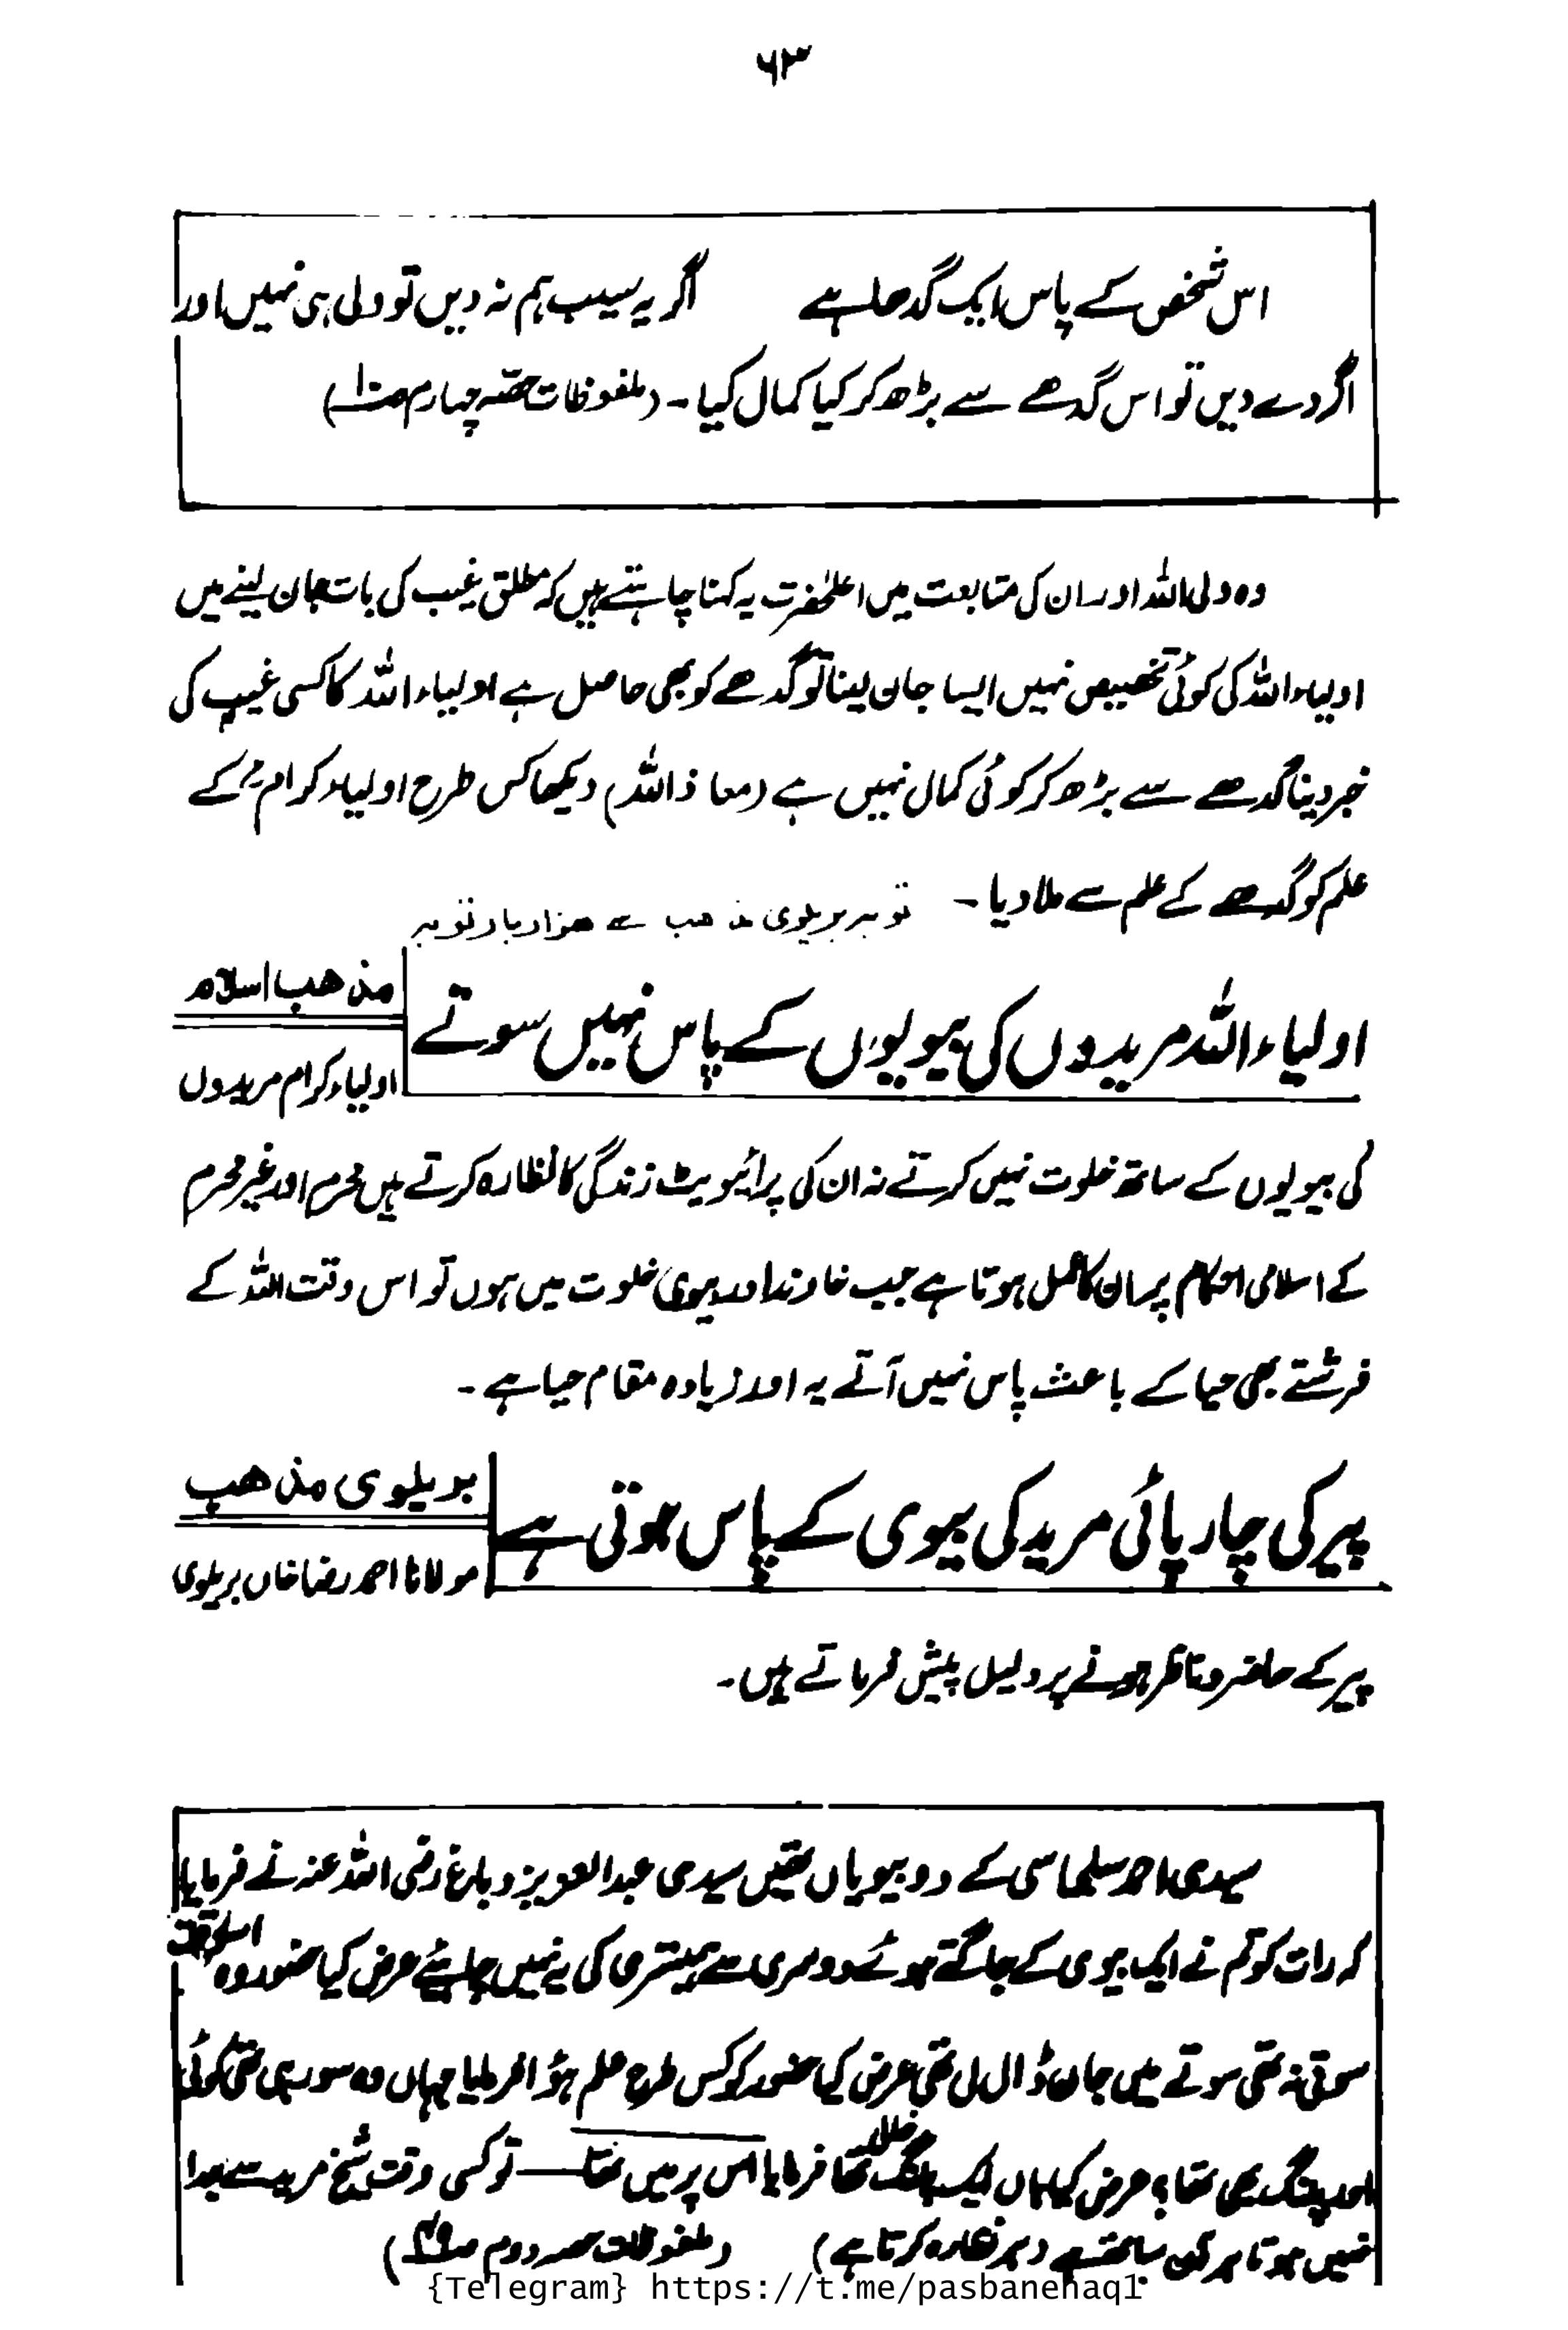 ۶۳
اس شخص کے پاس ایک گدھا ہے اگر یہ سیب ہم نہ دیں تو ولی ہی نہیں اور
اگر دے دیں تو اس گدھے سے بڑھ کر کیا کمال کیا۔ (ملفوظات حصہ چہارم صنا)
وہ ولی اللہ اور ان کی متابعت میں اعلٰحضرت یہ کہنا چاہتے ہیں کہ مطلق غیب کی بات جان لینے میں
اولیاء اللہ کی کوئی تخصیص نہیں ایسا جان لینا تو گدھے کو بھی حاصل ہے اولیاء اللہ کا کسی غیب کی
خبر دینا گدھے سے بڑھ کر کوئی کمال نہیں ہے (معاذ اللہ) دیکھا کس طرح اولیاء کرامؒ کے
علم کو گدھے کے علم سے ملا دیا۔ توبہ بریلوی مذھب سے ھزار بار توبہ
اولیاء اللہ مریدوں کی بیویوں کے پاس نہیں سوتے
مذھب اسلام
اولیاء کرام مریدوں
کی بیویوں کے ساتھ خلوت نہیں کرتے نہ ان کی پرائیویٹ زندگی کا نظارہ کرتے ہیں محرم اور غیر محرم
کے اسلامی احکام پر ان کا عمل ہوتا ہے جب خاوند اور بیوی خلوت میں ہوں تو اس وقت اللہ کے
فرشتے بھی حیا کے باعث پاس نہیں آتے یہ اور زیادہ مقام حیا ہے۔
پیر کی چارپائی مرید کی بیوی کے پاس ہوتی ہے
بریلوی مذھب
مولانا احمد رضا خاں بریلوی
پیر کے حاضر و ناظر ہونے پر دلیل پیش فرماتے ہیں۔
سیدی احمد سلجماسی کے دو بیویاں تھیں سیدی عبدالعزیز دباغ رضی اللہ عنہ نے فرمایا
کہ رات کو تم نے ایک بیوی کے جاگتے ہوئے دوسری سے ہمبستری کی یہ نہیں چاہیئے عرض کیا حضور وہ اسوقت
سوتی نہ تھی سوتے میں جان ڈال لی تھی عرض کیا حضور کو کس طرح علم ہوا فرمایا جہاں وہ سو رہی تھی کوئی
اور پلنگ بھی تھا؟ عرض کیا ہاں ایک پلنگ خالی تھا فرمایا اس پر میں تھا — تو کسی وقت شیخ مرید سے جدا
نہیں ہوتا ہر آن ساتھ ہے (ہر نظارہ کرتا ہے) (ملفوظات حصہ دوم ص۴۹)
{Telegram} https://t.me/pasbanehaq1